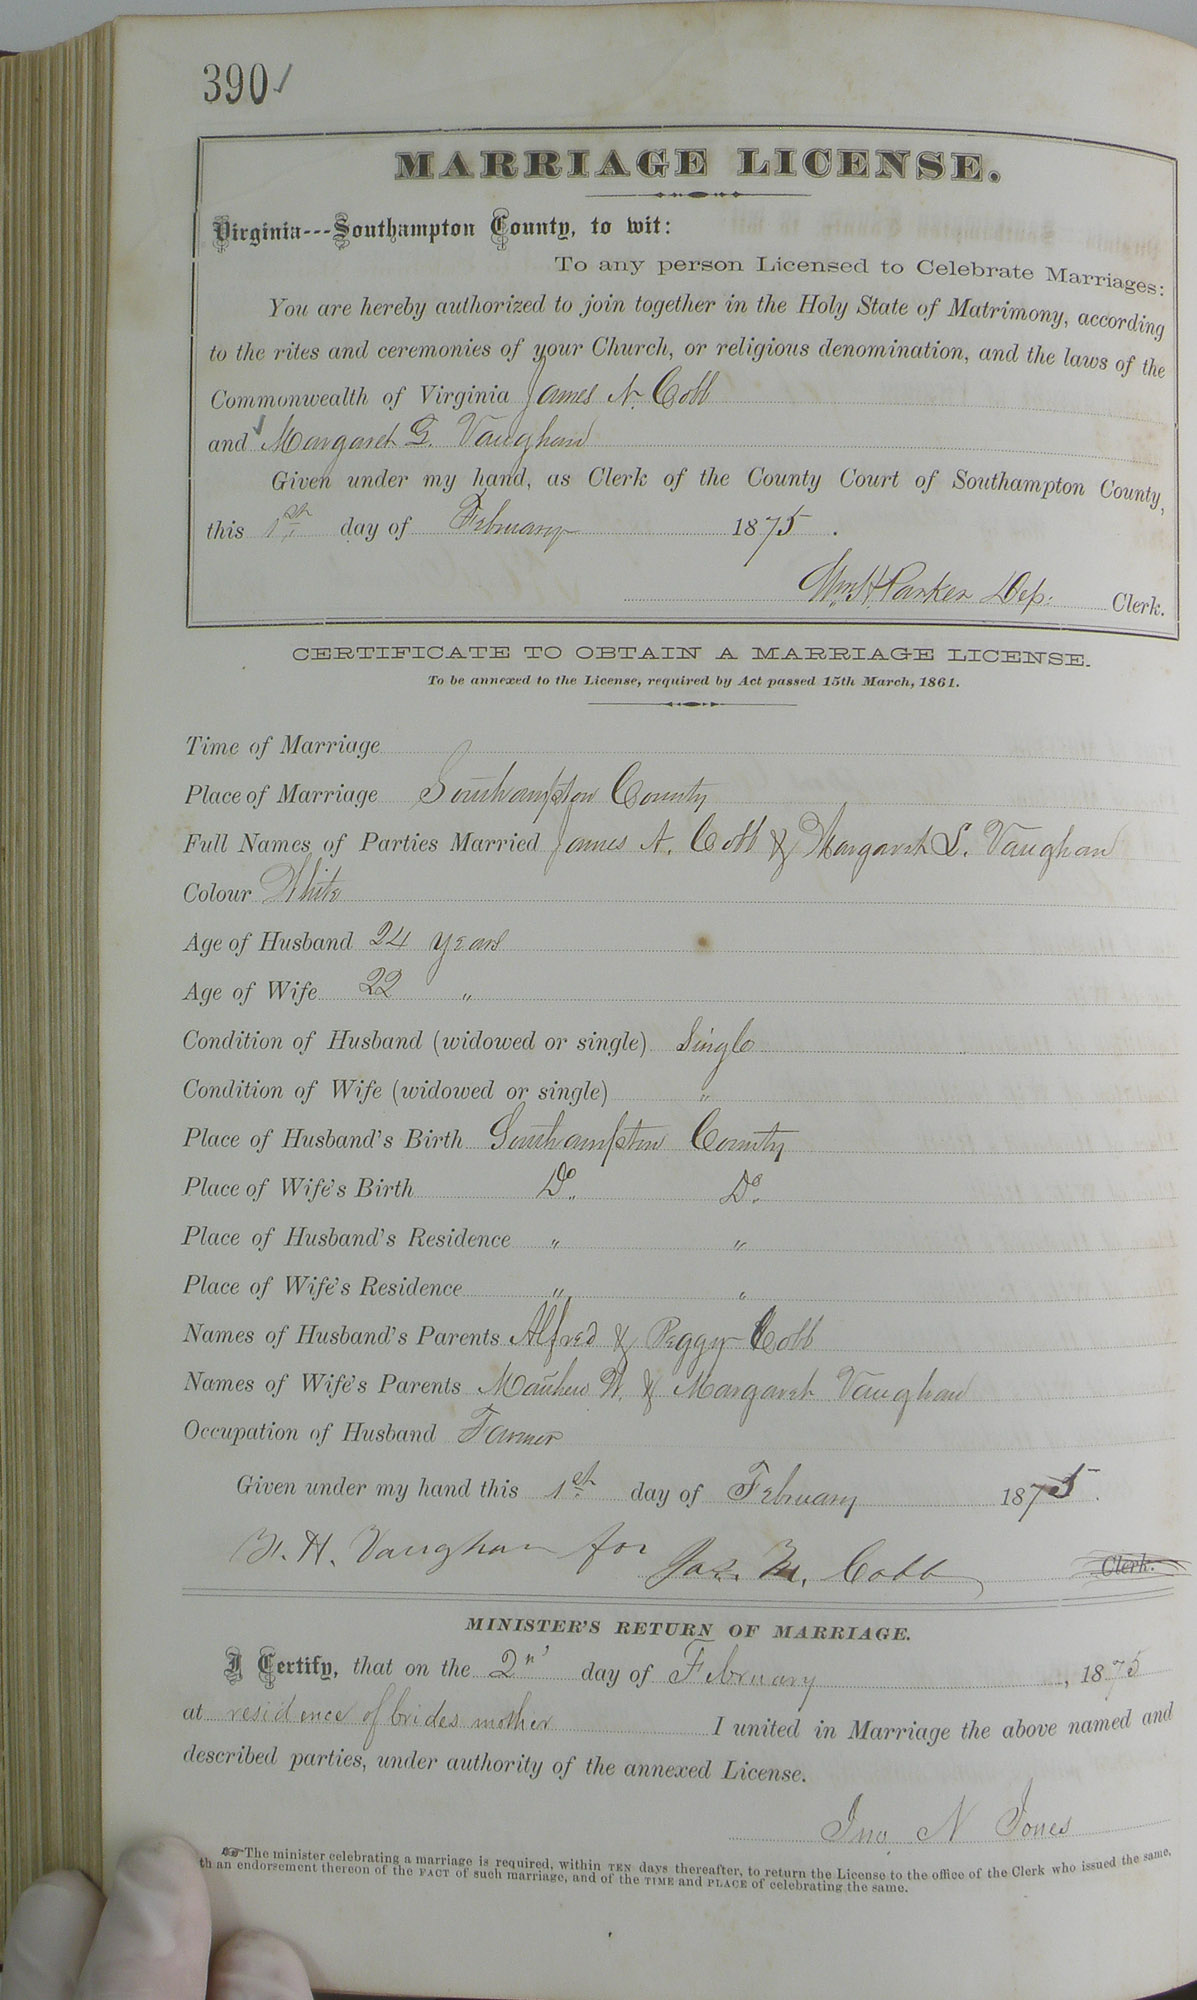 390 ✓
MARRIAGE LICENSE.
Virginia---Southampton County, to wit:
To any person Licensed to Celebrate Marriages:
You are hereby authorized to join together in the Holy State of Matrimony, according
to the rites and ceremonies of your Church, or religious denomination, and the laws of the
Commonwealth of Virginia James N. Cobb
and Margaret G. Vaughan
Given under my hand, as Clerk of the County Court of Southampton County,
this 1st day of February 1875.
Wm H. Parker Dep: Clerk.
CERTIFICATE TO OBTAIN A MARRIAGE LICENSE.
To be annexed to the License, required by Act passed 15th March, 1861.
Time of Marriage
Place of Marriage Southampton County
Full Names of Parties Married James Cobb & Margaret Vaughan
Colour White
Age of Husband 24 years
Age of Wife 22 "
Condition of Husband (widowed or single) Single
Condition of Wife (widowed or single) "
Place of Husband's Birth Southampton County
Place of Wife's Birth Do. Do.
Place of Husband's Residence " "
Place of Wife's Residence " "
Names of Husband's Parents Alfred & Peggy Cobb
Names of Wife's Parents Mathew & Margaret Vaughan
Occupation of Husband Farmer
Given under my hand this 1st day of February 1875.
H. Vaughan for Jas. Cobb Clerk.
MINISTER'S RETURN OF MARRIAGE.
I Certify, that on the 2nd day of February, 1875
at residence of brides mother I united in Marriage the above named and
described parties, under authority of the annexed License.
Jno N Jones
☞The minister celebrating a marriage is required, within TEN days thereafter, to return the License to the office of the Clerk who issued the same,
th an endorsement thereon of the FACT of such marriage, and of the TIME and PLACE of celebrating the same.